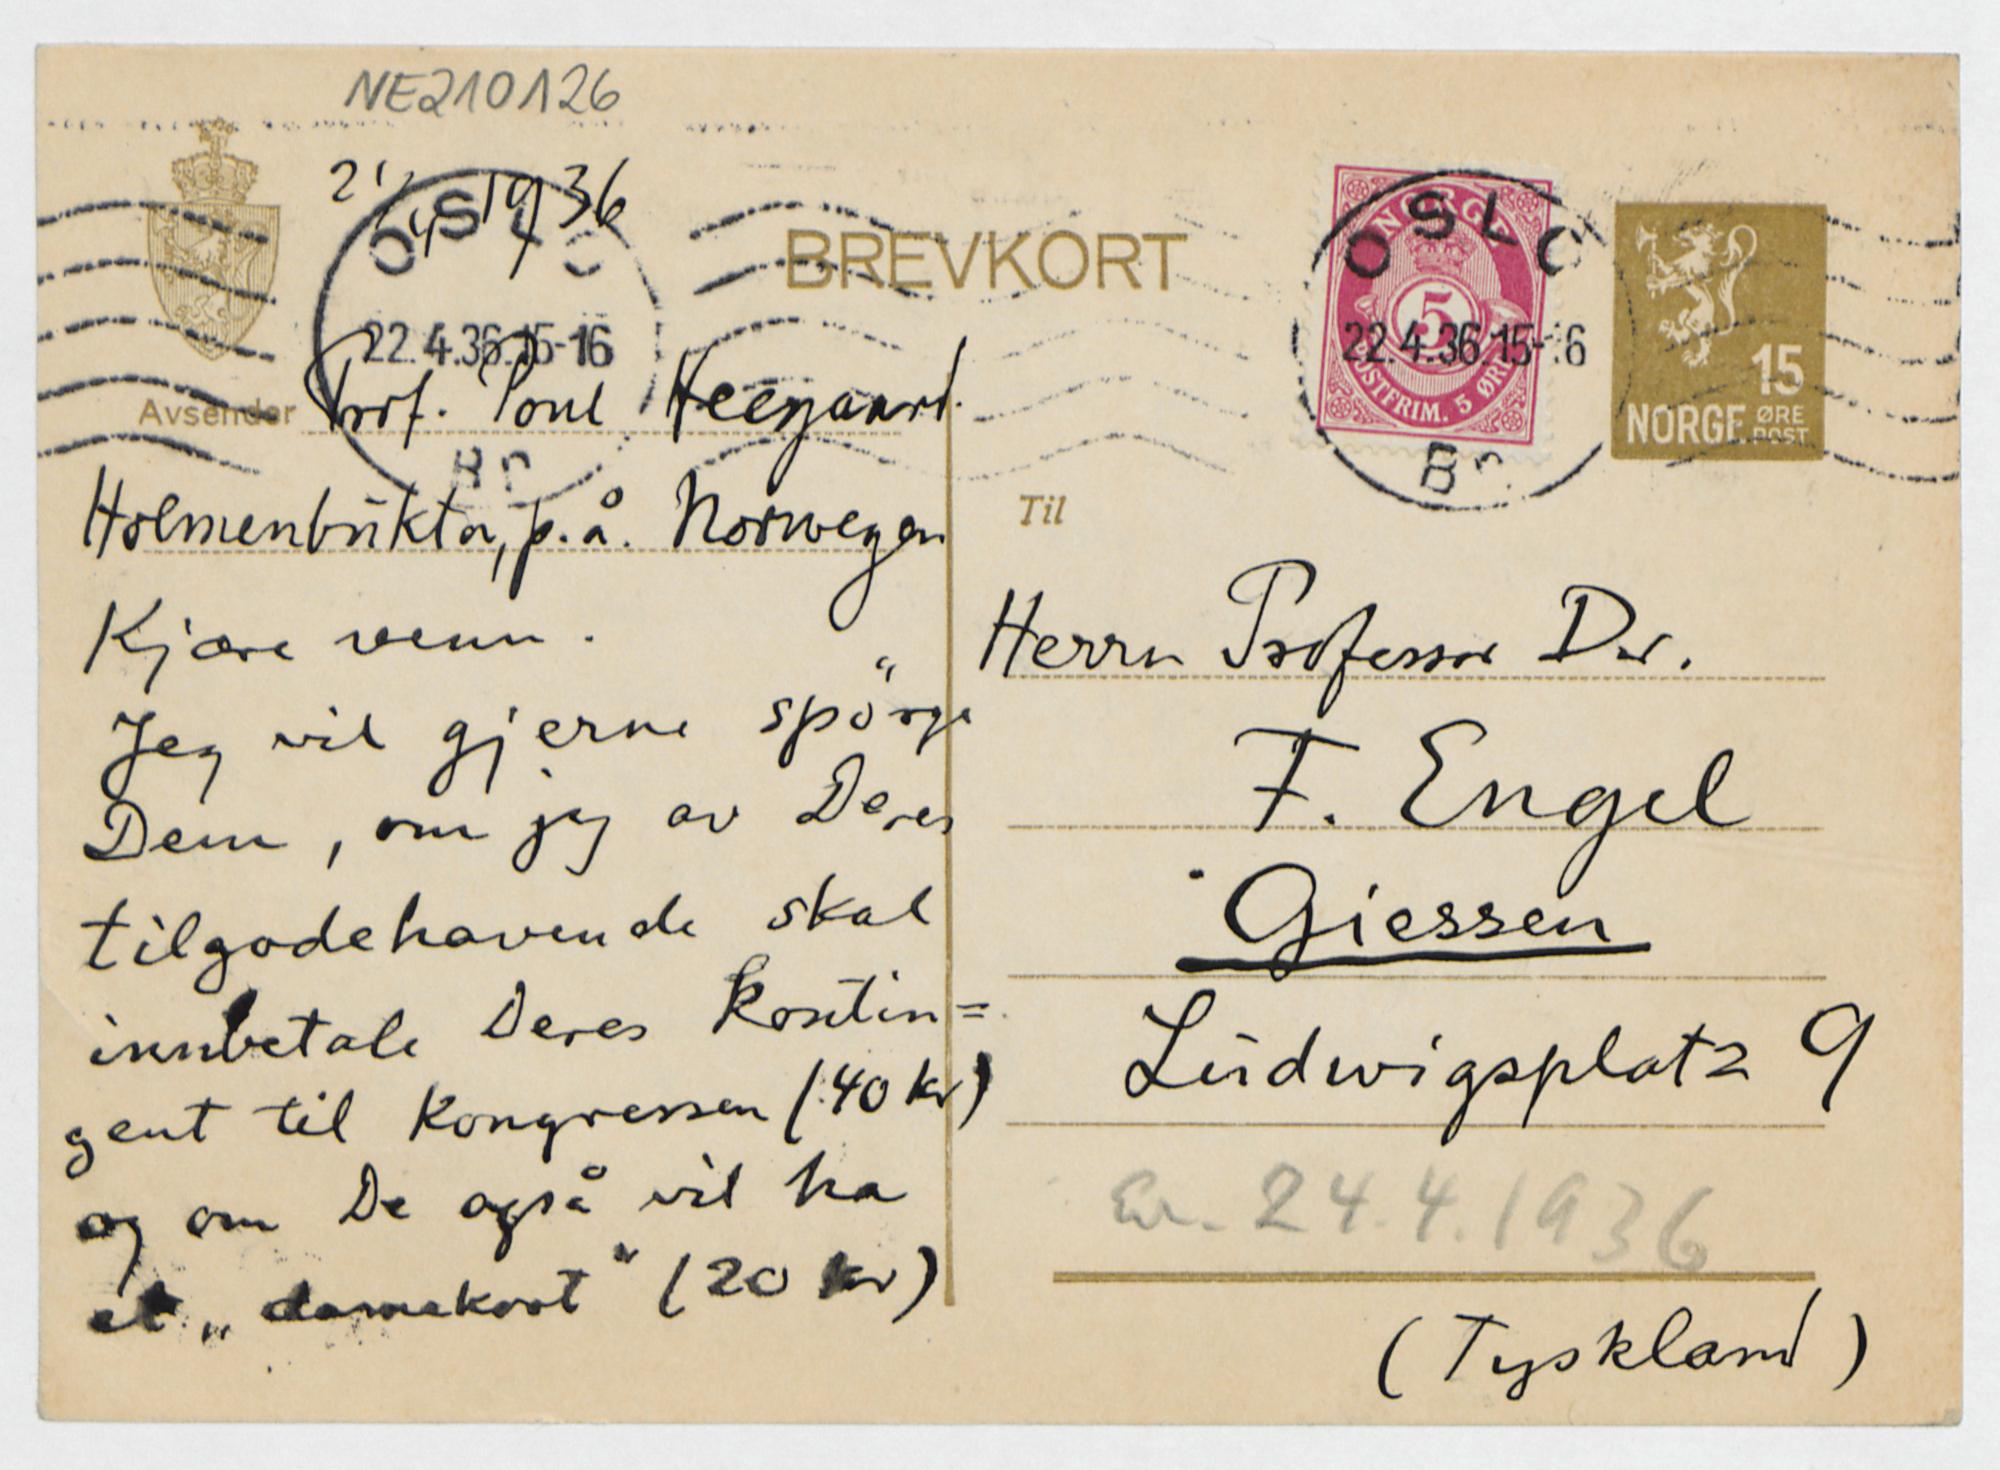 NE210126
21/4 1936
OSLO
22.4.36.15-16
Br
BREVKORT
NORGE
5
POSTFRIM. 5 ØRE
OSLO
22.4.36.15-16
Br
15
NORGE ØRE
POST
Avsender Prof. Poul Heegaard.
Holmenbŭkta, p.å. Norwegen
Kjære venn.
Jeg vil gjerne spörge
Dem, om jeg av Deres
tilgodehavende skal
innbetale Deres Kontin=
gent til Kongressen (40 kr)
og om De også vil ha
et „damekort“ (20 kr)
Til
Herrn Professor Dr.
F. Engel
Giessen
Lŭdwigsplatz 9
24.4.1936
(Tyskland)